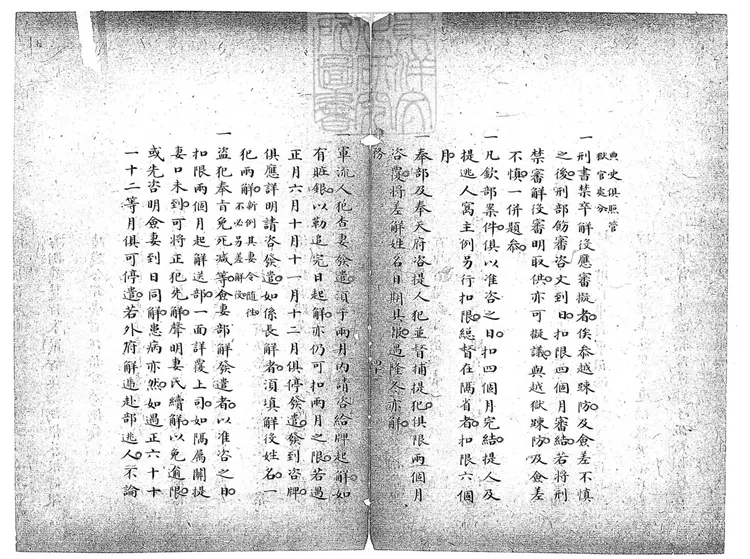 典史俱照管
獄官處分
一刑書禁卒解役應審擬者俟叅越踈防及僉差不慎
之後刑部飭審咨文到日扣限四個月審結若將刑
禁審解役審明取供亦可擬議與越獄踈防及僉差
不慎一併題叅
一凡欽部案件俱以准咨之日扣四個月完結提人及
提逃人窩主例另行扣限總督在隔省者扣限六個
月
一奉部及奉天府咨提人犯並督捕提犯俱限兩個月
咨覆將差解姓名日期具報過隆冬亦解
一軍流人犯査妻發遣須于兩月內請咨給牌起解如
有賍銀以勒追完日起解亦仍可扣兩月之限若過
正月六月十月十一月十二月俱停發遣發到咨牌
俱應詳明請咨發遣如係長解者湏填解役姓名一
犯兩解新例其妻令隨從
不必另差解役
一盜犯奉旨免死减等僉妻部解發遣者以准咨之日
扣限兩個月起解送部一面詳覆上司如隔屬關提
妻口未到可將正犯先解聲明妻氏續解以免逾限
或先咨明僉妻到日同解患病亦然如過正六十十
一十二等月俱可停遣若外府解遞赴部逃人不論